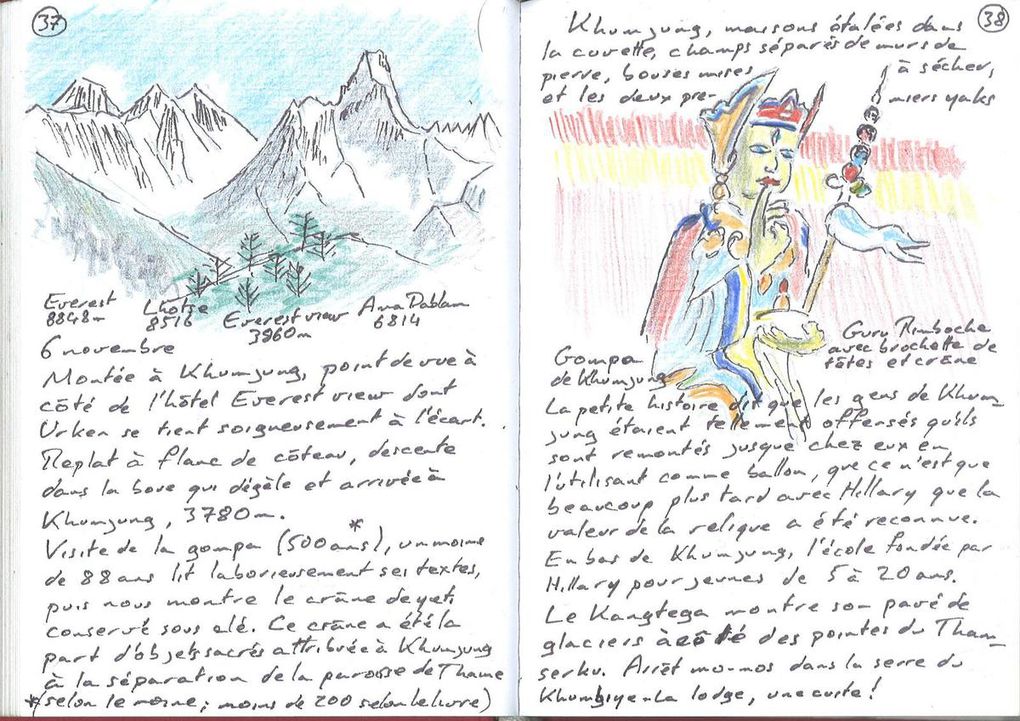 37
Everest
8848m
Lhotse
8516
Everest view
3860m
Ama Dablam
6814
6 novembre
Montée à Khumjung, point de vue à
côté de l'hôtel Everest view dont
Urken se tient soigneusement à l'écart.
Replat à flanc de côteau, descente
dans la boue qui dégèle et arrivée à
Khumjung, 3780m.
Visite de la gompa (500 ans*), un moine
de 88 ans lit laborieusement ses textes,
puis nous montre le crâne de yeti
conservé sous clé. Ce crâne a été la
part d'objets sacrés attribuée à Khumjung
à la séparation de la paroisse de Thame
*(selon le moine ; moins de 200 selon le livre)
38
Khumjung, maisons étalées dans
la cuvette, champs séparés de murs de
pierre, bouses mises à sécher,
et les deux premiers yaks
Guru Rimboche
avec brochette de
têtes et crâne
Gompa
de Khumjung
La petite histoire dit que les gens de Khum-
jung étaient tellement offensés qu'ils
sont remontés jusque chez eux en
l'utilisant comme ballon, que ce n'est que
beaucoup plus tard avec Hillary que la
valeur de la relique a été reconnue.
En bas de Khumjung, l'école fondée par
Hillary pour jeunes de 5 à 20 ans.
Le Kangtega montre son pavé de
glaciers à côté des pointes du Tham-
serku. Arrêt mo-mos dans la serre du
Khumbiye-La lodge, une cuite !